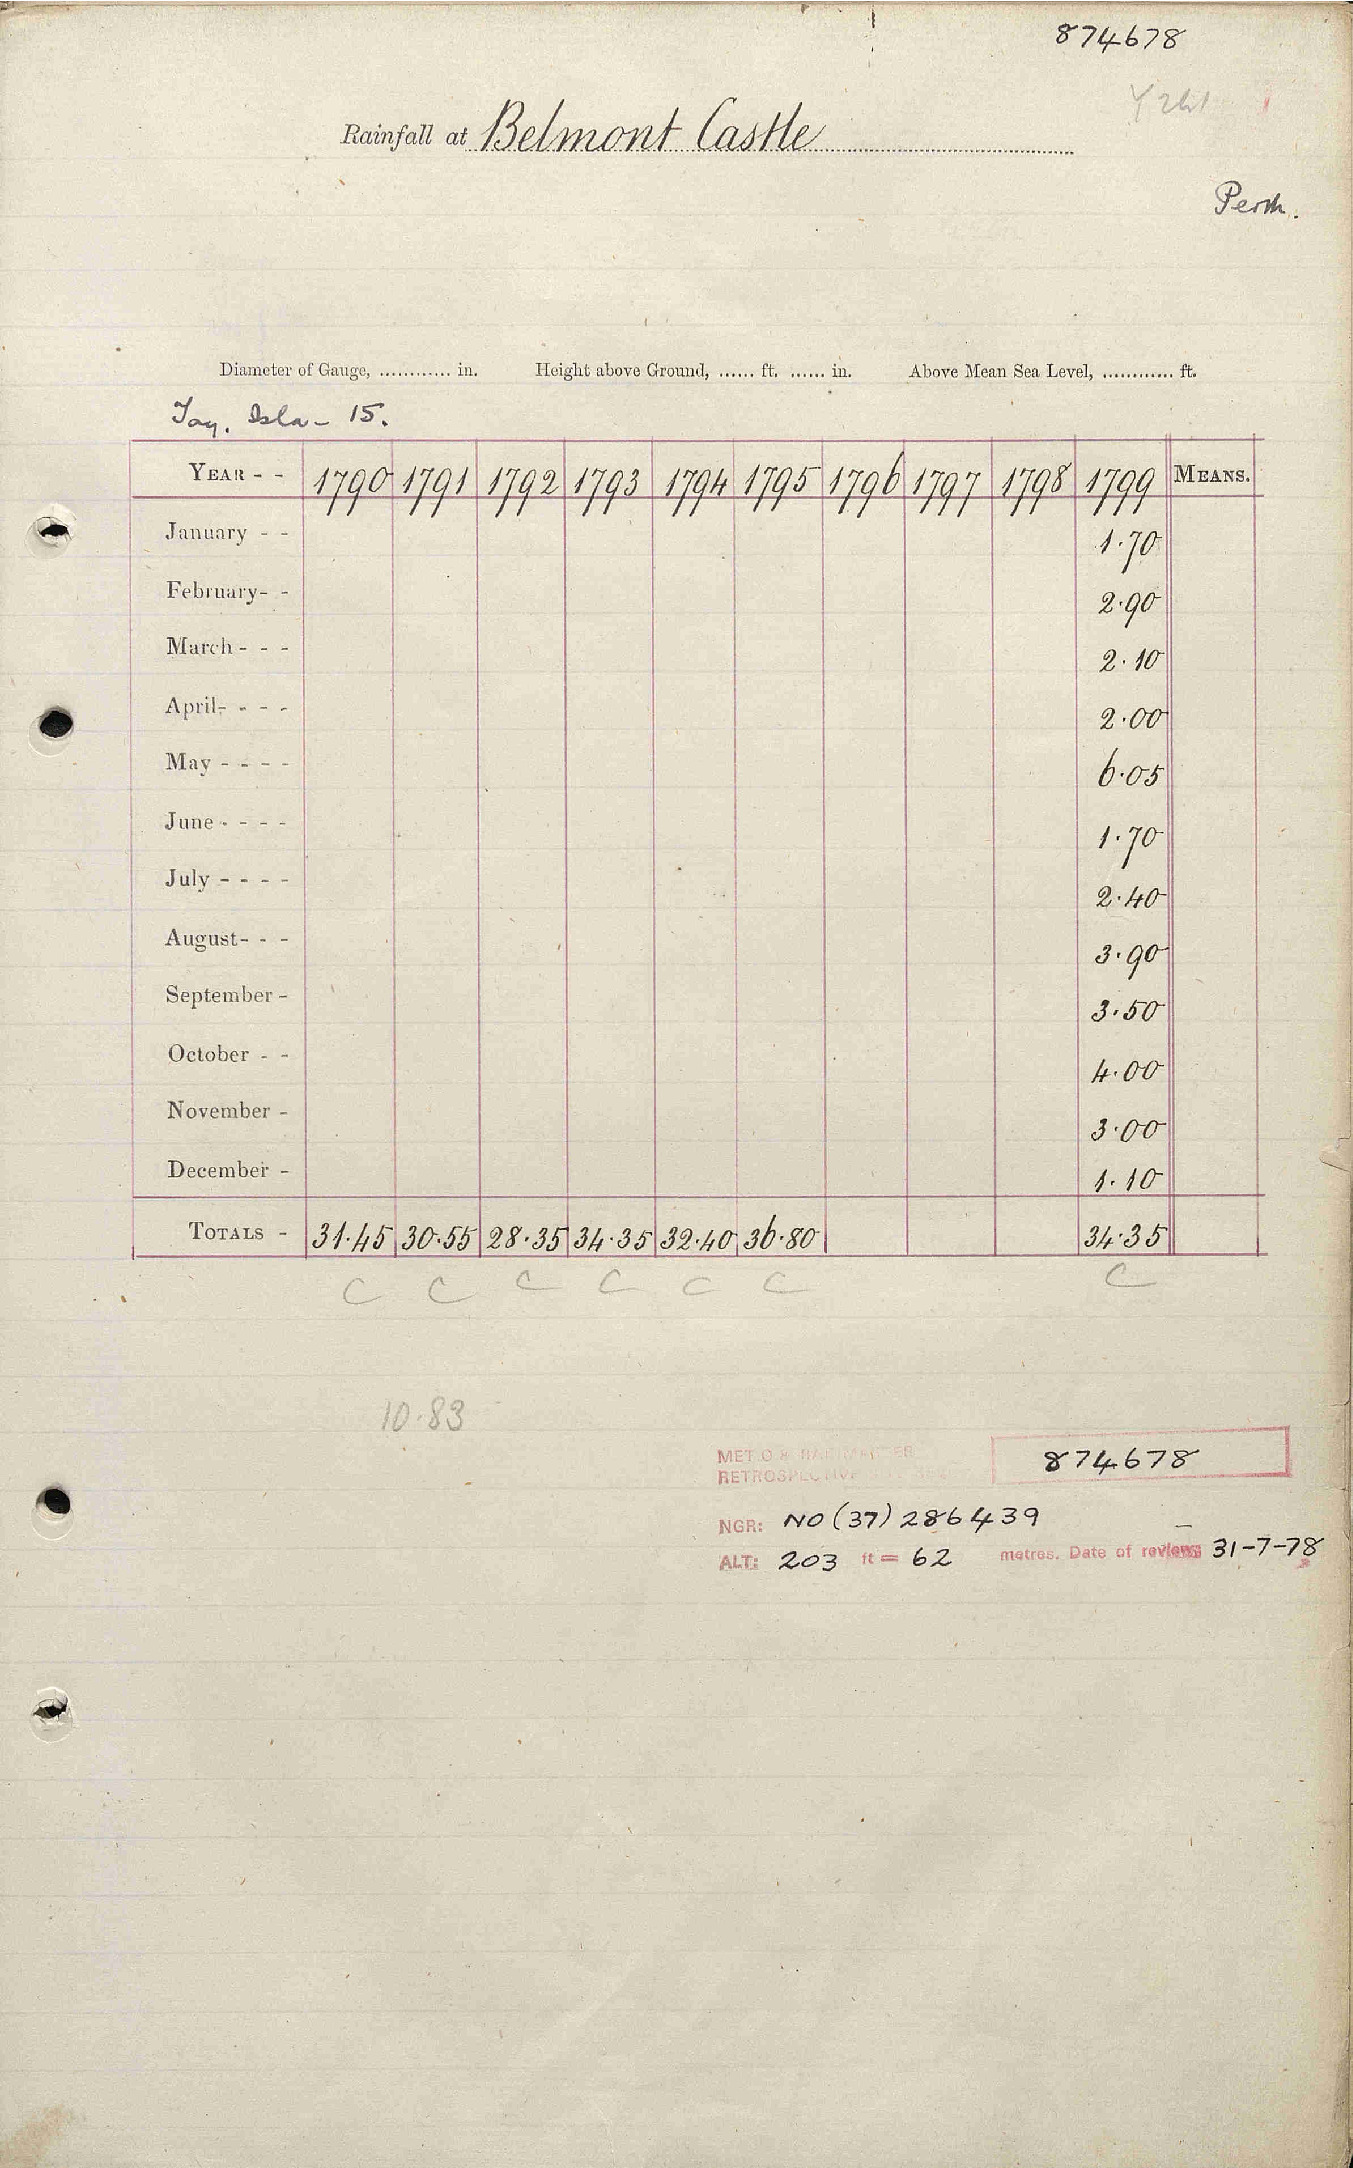 874678
Rainfall at Belmont Castle
Perth.
Diameter of Gauge, ............ in. Height above Ground, ...... ft. ...... in. Above Mean Sea Level, ............ ft.
Tay. Isla - 15.
YEAR - - 1790 1791 1792 1793 1794 1795 1796 1797 1798 1799 MEANS.
January - - 1.70
February - - 2.90
March - - - 2.10
April - - - - 2.00
May - - - - 6.05
June - - - - 1.70
July - - - - 2.40
August - - - 3.90
September - 3.50
October - - 4.00
November - 3.00
December - 1.10
TOTALS - 31.45 30.55 28.35 34.35 32.40 36.80 34.35
C C C C C C C
10.83
MET.O.8
RETROSPECTIVE 874678
NGR: NO (37) 286439
ALT: 203 ft = 62 metres. Date of review 31-7-78